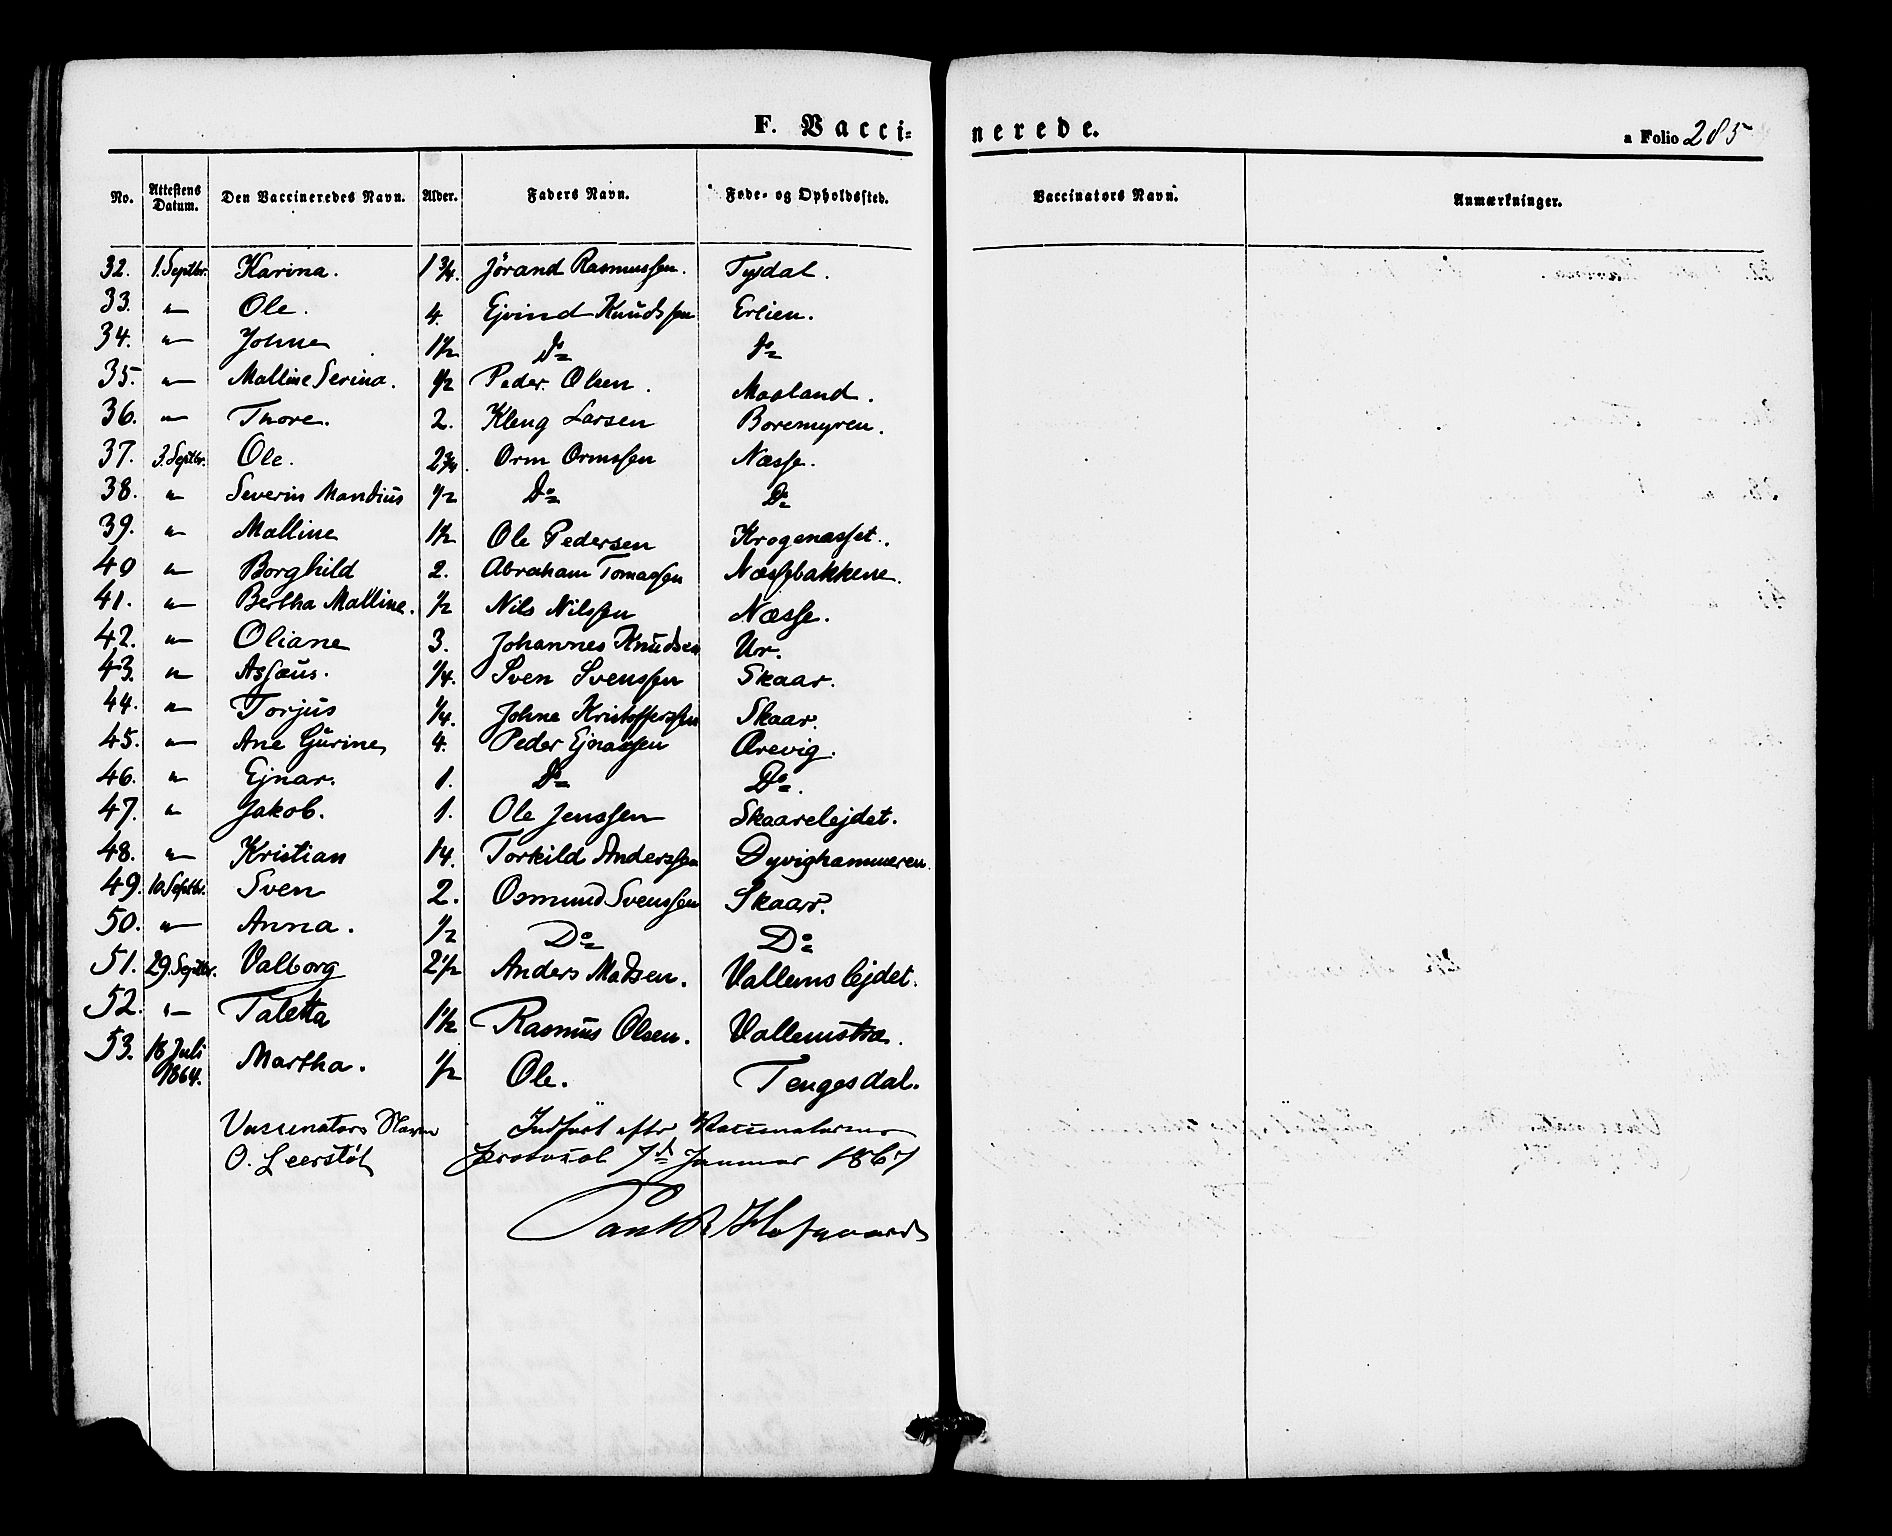 F. Vacci=
nerede.
a Folio 285
No. Attestens Datum. Den Vaccineredes Navn. Alder. Faders Navn. Føde- og Opholdssted. Vaccinators Navn. Anmærkninger.
32. 1. Septbr. Karina. 1 3/4. Jørand Rasmussen. Tysdal.
33. " Ole. 4. Ejvind Knudssen Erlien.
34. " Johne 1 1/2 Do Do
35. " Malline Serina. 1/2 Peder Olsen. Maaland.
36. " Thore. 2. Kleng Larsen Boremyren.
37. 3. Septbr. Ole. 2 3/4. Orm Ormssen Næsse.
38. " Severin Mandius 1/2 Do Do
39. " Malline 1 1/2 Ole Pedersen Krogenæsset.
40 " Borghild 2. Abraham Tomassen Næssebakkene.
41. " Bertha Malline. 1/2 Nils Nilssen Næsse.
42. " Oliane 3. Johannes Knudsen Ur.
43. " Assæus. 1/4. Sven Svenssen Skaar.
44. " Torjus 1/4. Johne Kristofferssen Skaar.
45. " Ane Gurine 4. Peder Ejnassen Ørevig.
46. " Ejnar. 1. Do Do.
47. " Jakob. 1. Ole Jenssen Skaarelejdet.
48. " Kristian 14. Torkild Anderssen Dyvighammeren.
49. 10. Septbr. Sven 2. Osmund Svenssen Skaar.
50. " Anna. 1/2 Do Do
51. 29. Septbr. Valborg 2 1/2 Anders Madsen. Vallemslejdet.
52. " Taletta 1 1/2 Rasmus Olsen. Vallemstræ.
53. 18 Juli 1864. Martha. 1/2 Ole. Tengesdal.
Vaccinators Navn Indført efter Vaccinatorens
O. Leerstøl Protocol 7d Januar 1867
Hofgaard